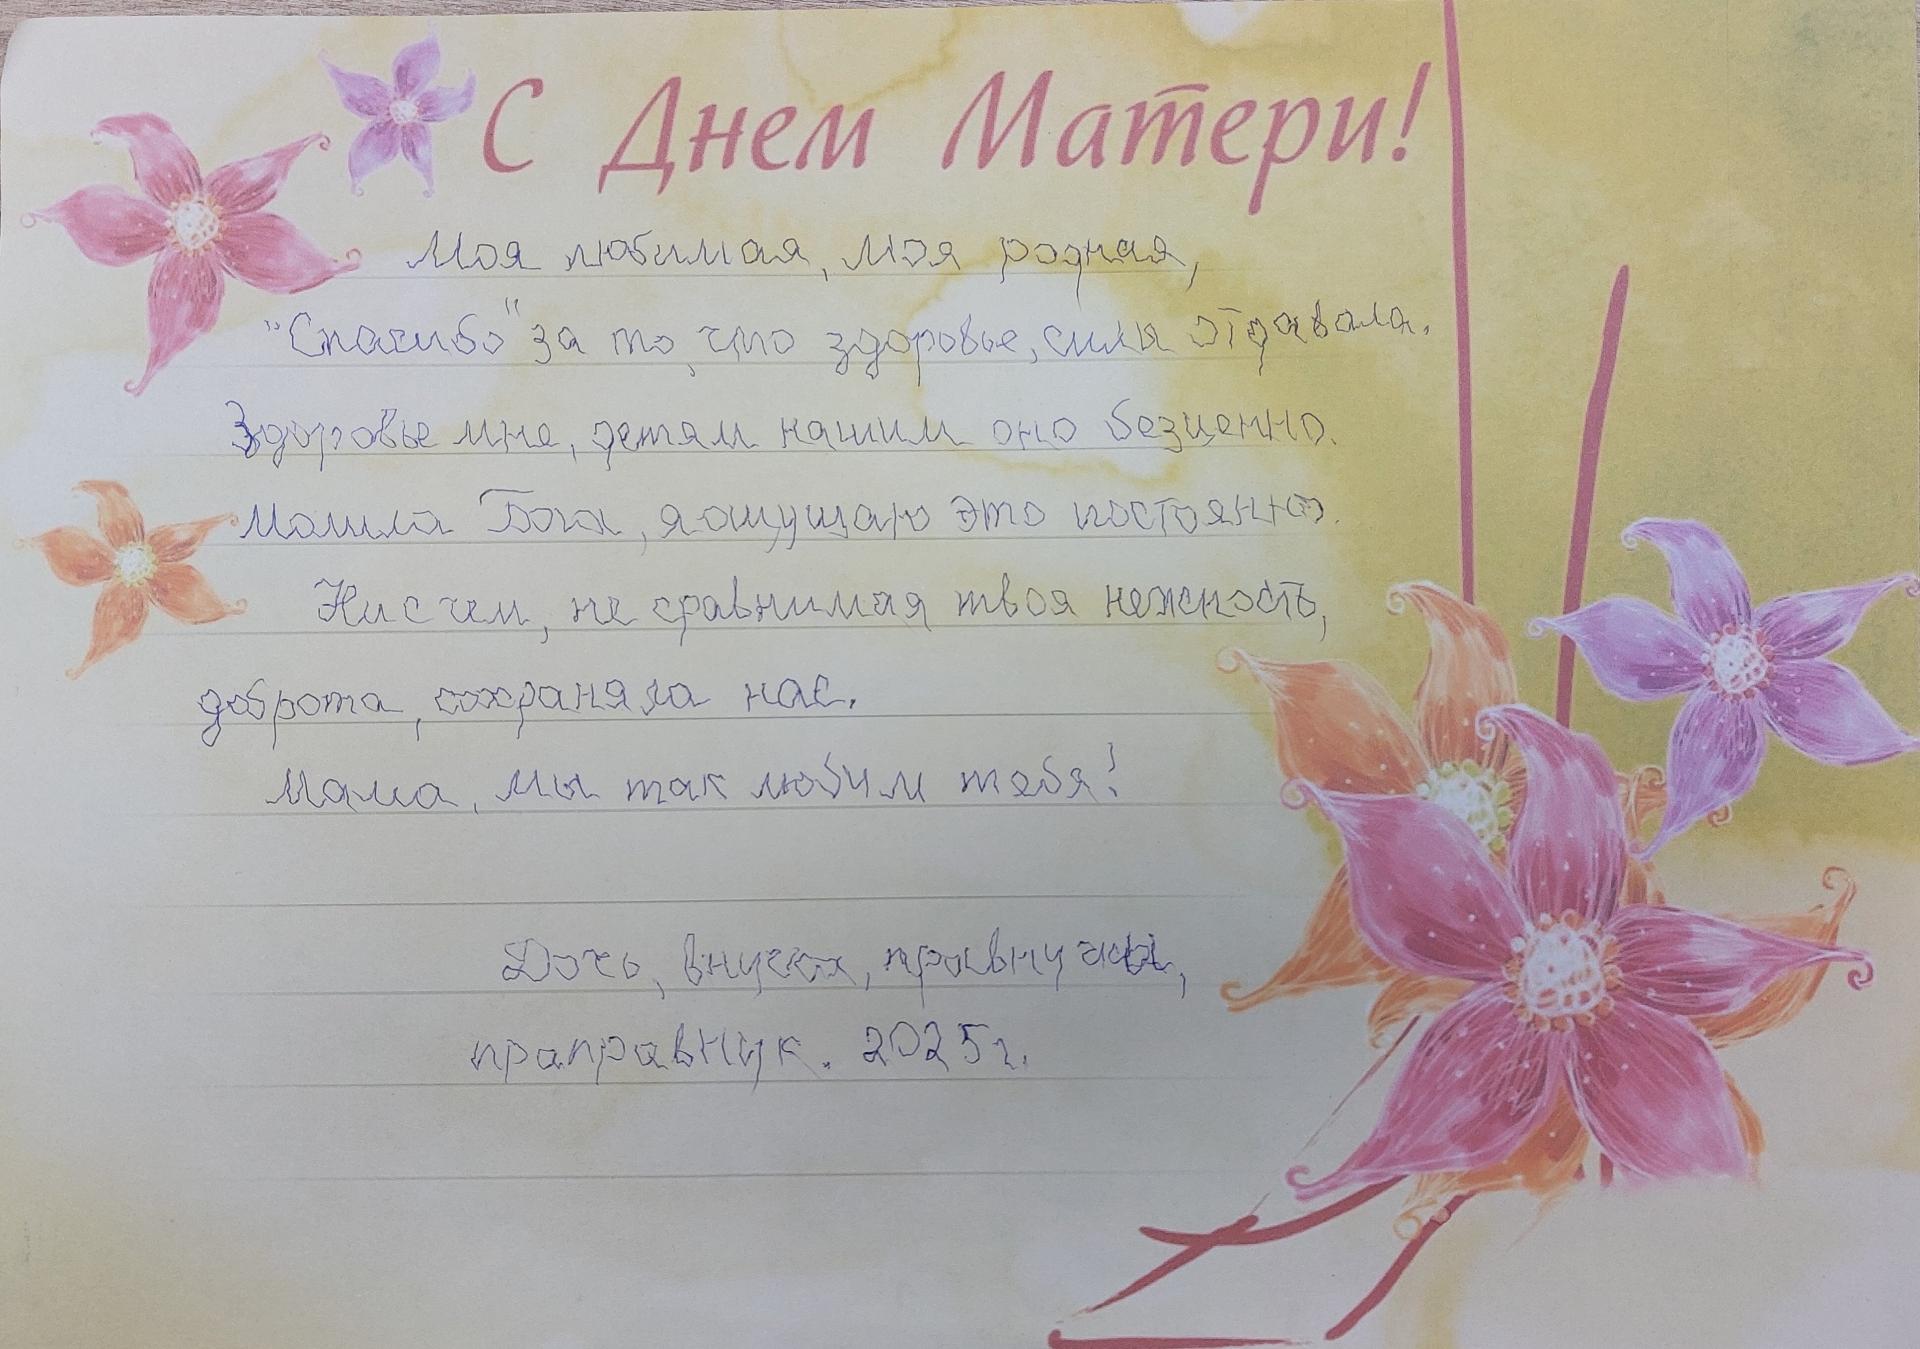 С Днем Матери!
Моя любимая, моя родная,
"Спасибо" за то, что здоровье, силы отдавала.
Здоровье мне, детям нашим оно безценно.
Молила Бога, я ощущаю это постоянно.
Ни с чем, не сравнимая твоя нежность,
доброта, сохраняла нас.
Мама, мы так любим тебя!
Дочь, внучка, правнучка,
праправнук. 2025г.